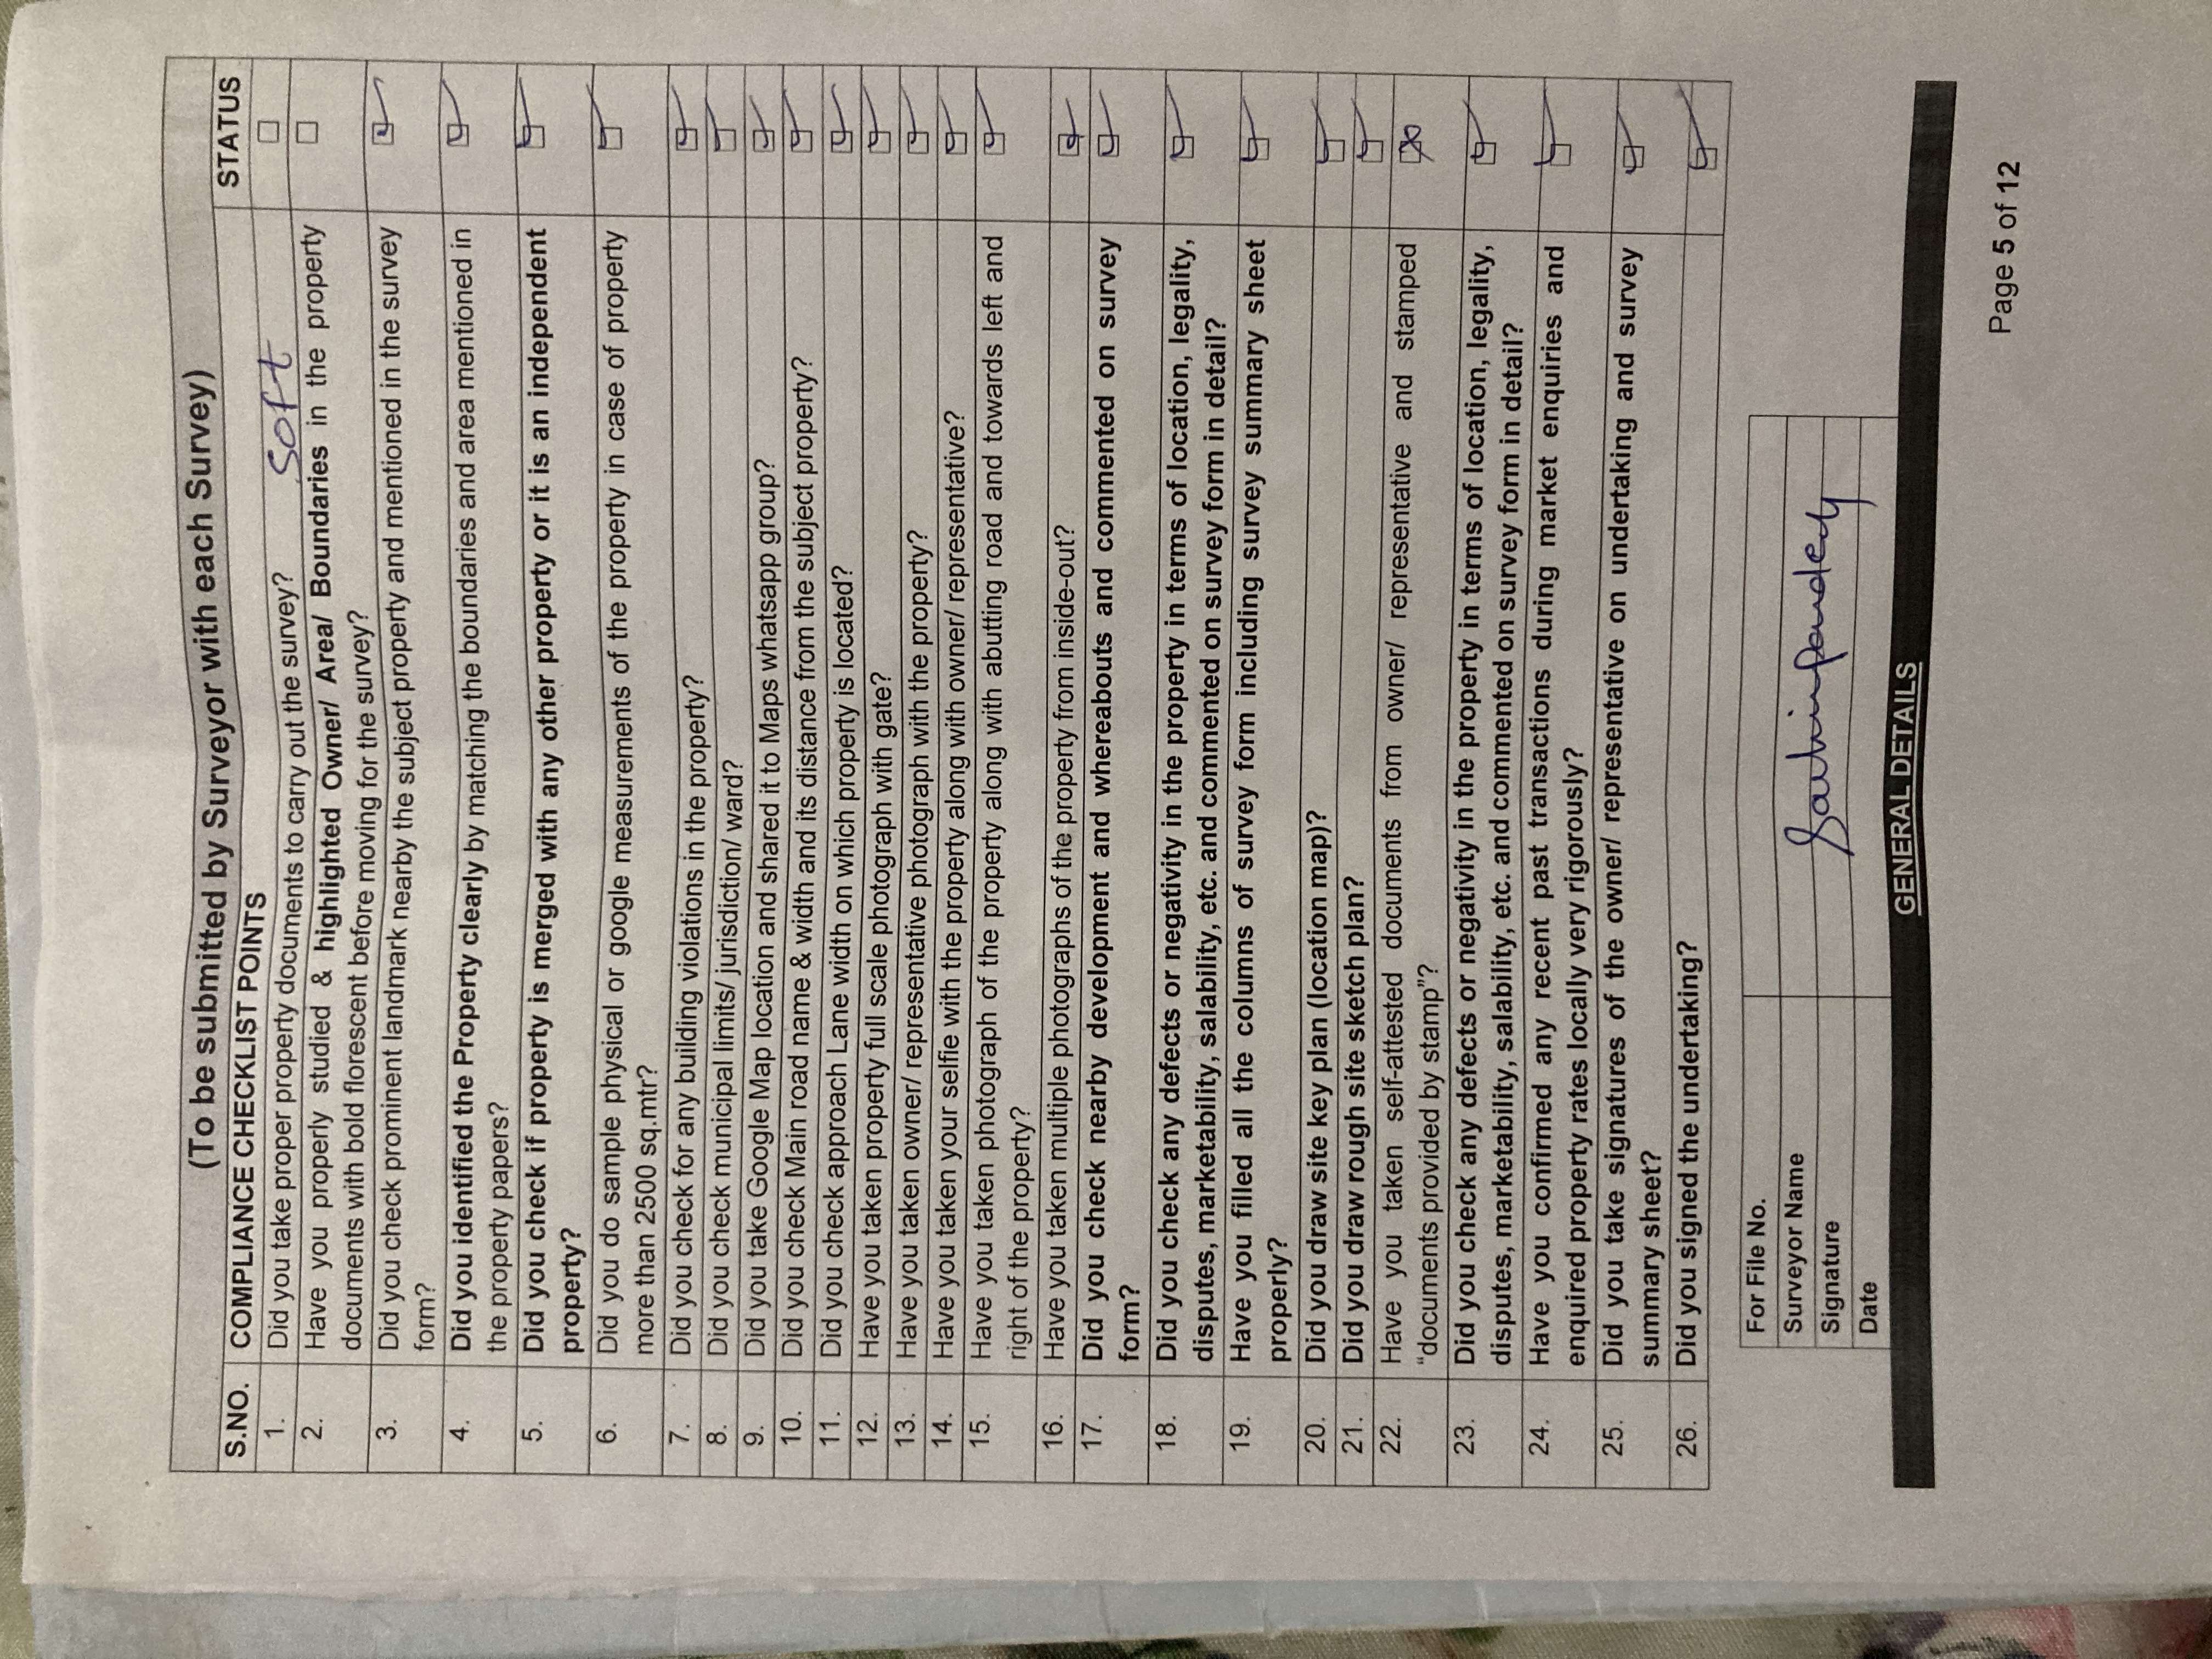 (To be submitted by Surveyor with each Survey)
S.NO. COMPLIANCE CHECKLIST POINTS STATUS
1. Did you take proper property documents to carry out the survey? Soft ☐
2. Have you properly studied & highlighted Owner/ Area/ Boundaries in the property ☐
documents with bold florescent before moving for the survey?
3. Did you check prominent landmark nearby the subject property and mentioned in the survey ☑
form?
4. Did you identified the Property clearly by matching the boundaries and area mentioned in ☑
the property papers?
5. Did you check if property is merged with any other property or it is an independent ☑
property?
6. Did you do sample physical or google measurements of the property in case of property ☑
more than 2500 sq.mtr?
7. Did you check for any building violations in the property? ☑
8. Did you check municipal limits/ jurisdiction/ ward? ☑
9. Did you take Google Map location and shared it to Maps whatsapp group? ☑
10. Did you check Main road name & width and its distance from the subject property? ☑
11. Did you check approach Lane width on which property is located? ☑
12. Have you taken property full scale photograph with gate? ☑
13. Have you taken owner/ representative photograph with the property? ☑
14. Have you taken your selfie with the property along with owner/ representative? ☑
15. Have you taken photograph of the property along with abutting road and towards left and ☑
right of the property?
16. Have you taken multiple photographs of the property from inside-out? ☑
17. Did you check nearby development and whereabouts and commented on survey ☑
form?
18. Did you check any defects or negativity in the property in terms of location, legality, ☑
disputes, marketability, salability, etc. and commented on survey form in detail?
19. Have you filled all the columns of survey form including survey summary sheet ☑
properly?
20. Did you draw site key plan (location map)? ☑
21. Did you draw rough site sketch plan? ☑
22. Have you taken self-attested documents from owner/ representative and stamped ☒
“documents provided by stamp”?
23. Did you check any defects or negativity in the property in terms of location, legality, ☑
disputes, marketability, salability, etc. and commented on survey form in detail?
24. Have you confirmed any recent past transactions during market enquiries and ☑
enquired property rates locally very rigorously?
25. Did you take signatures of the owner/ representative on undertaking and survey ☑
summary sheet?
26. Did you signed the undertaking? ☑
For File No.
Surveyor Name
Signature Sachin pandey
Date
GENERAL DETAILS
Page 5 of 12